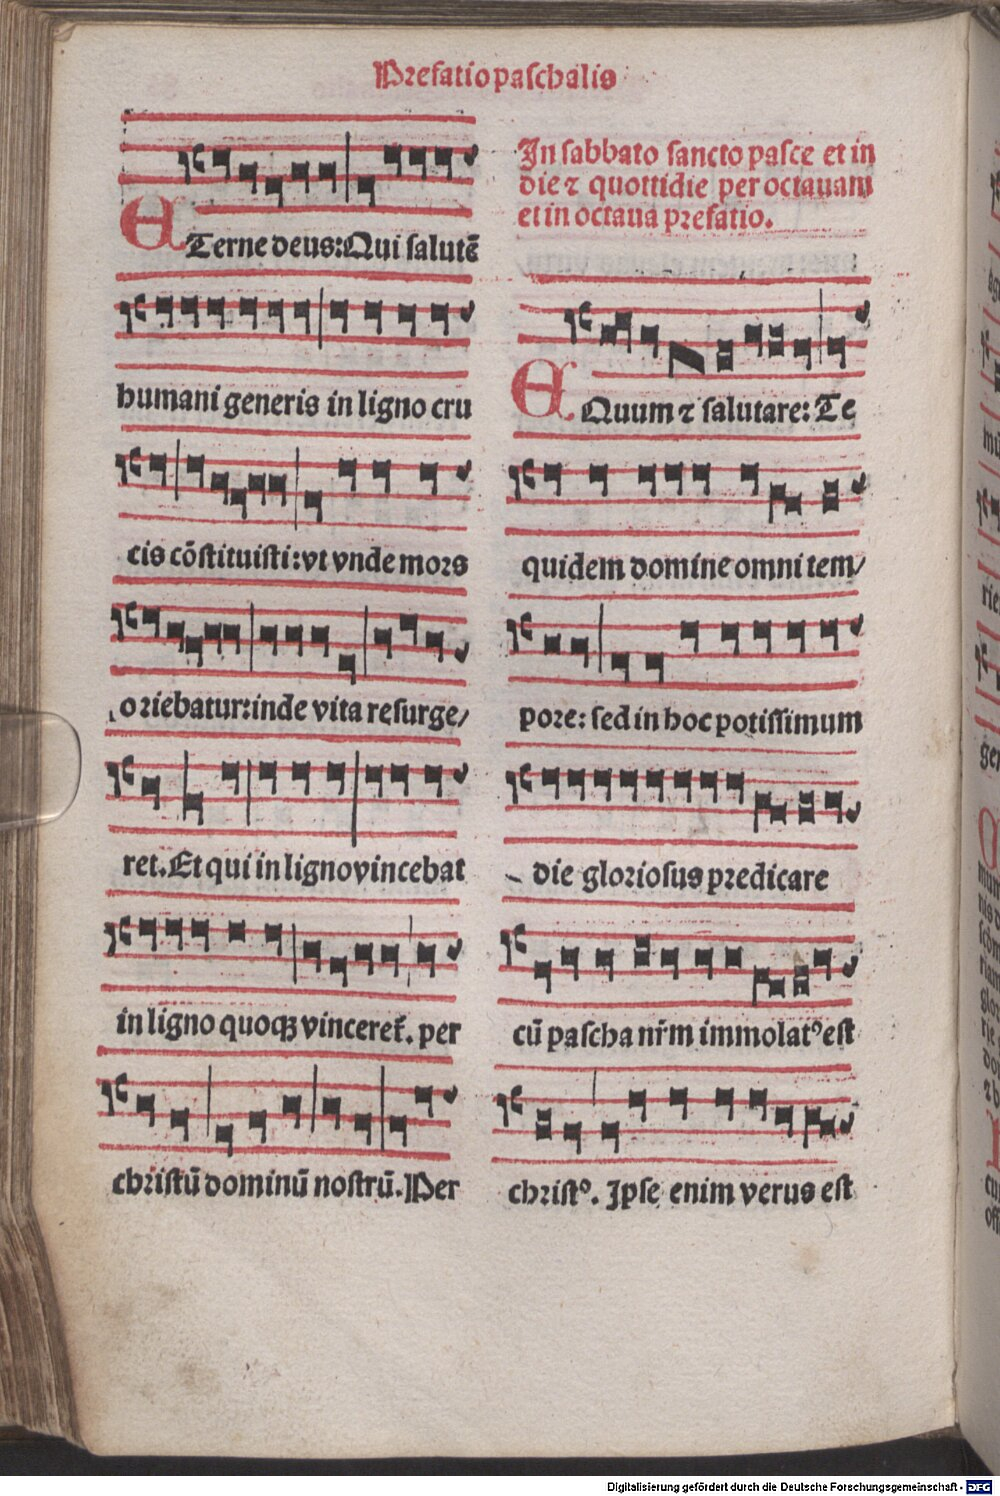 Prefatio paschalis
ETerne deus: Qui salutē
humani generis in ligno cru
cis cōstituisti: vt vnde mors
oriebatur: inde vita resurge/
ret. Et qui in ligno vincebat
in ligno quoqꝫ vinceret̄. per
christū dominū nostrū. Per
In sabbato sancto pasce et in
die ⁊ quottidie per octauam
et in octaua prefatio.
EQuum ⁊ salutare: Te
quidem domine omni tem/
pore: sed in hoc potissimum
die gloriosus predicare
cū pascha nr̄m immolatꝰ est
christꝰ. Ipse enim verus est
Digitalisierung gefördert durch die Deutsche Forschungsgemeinschaft - DFG